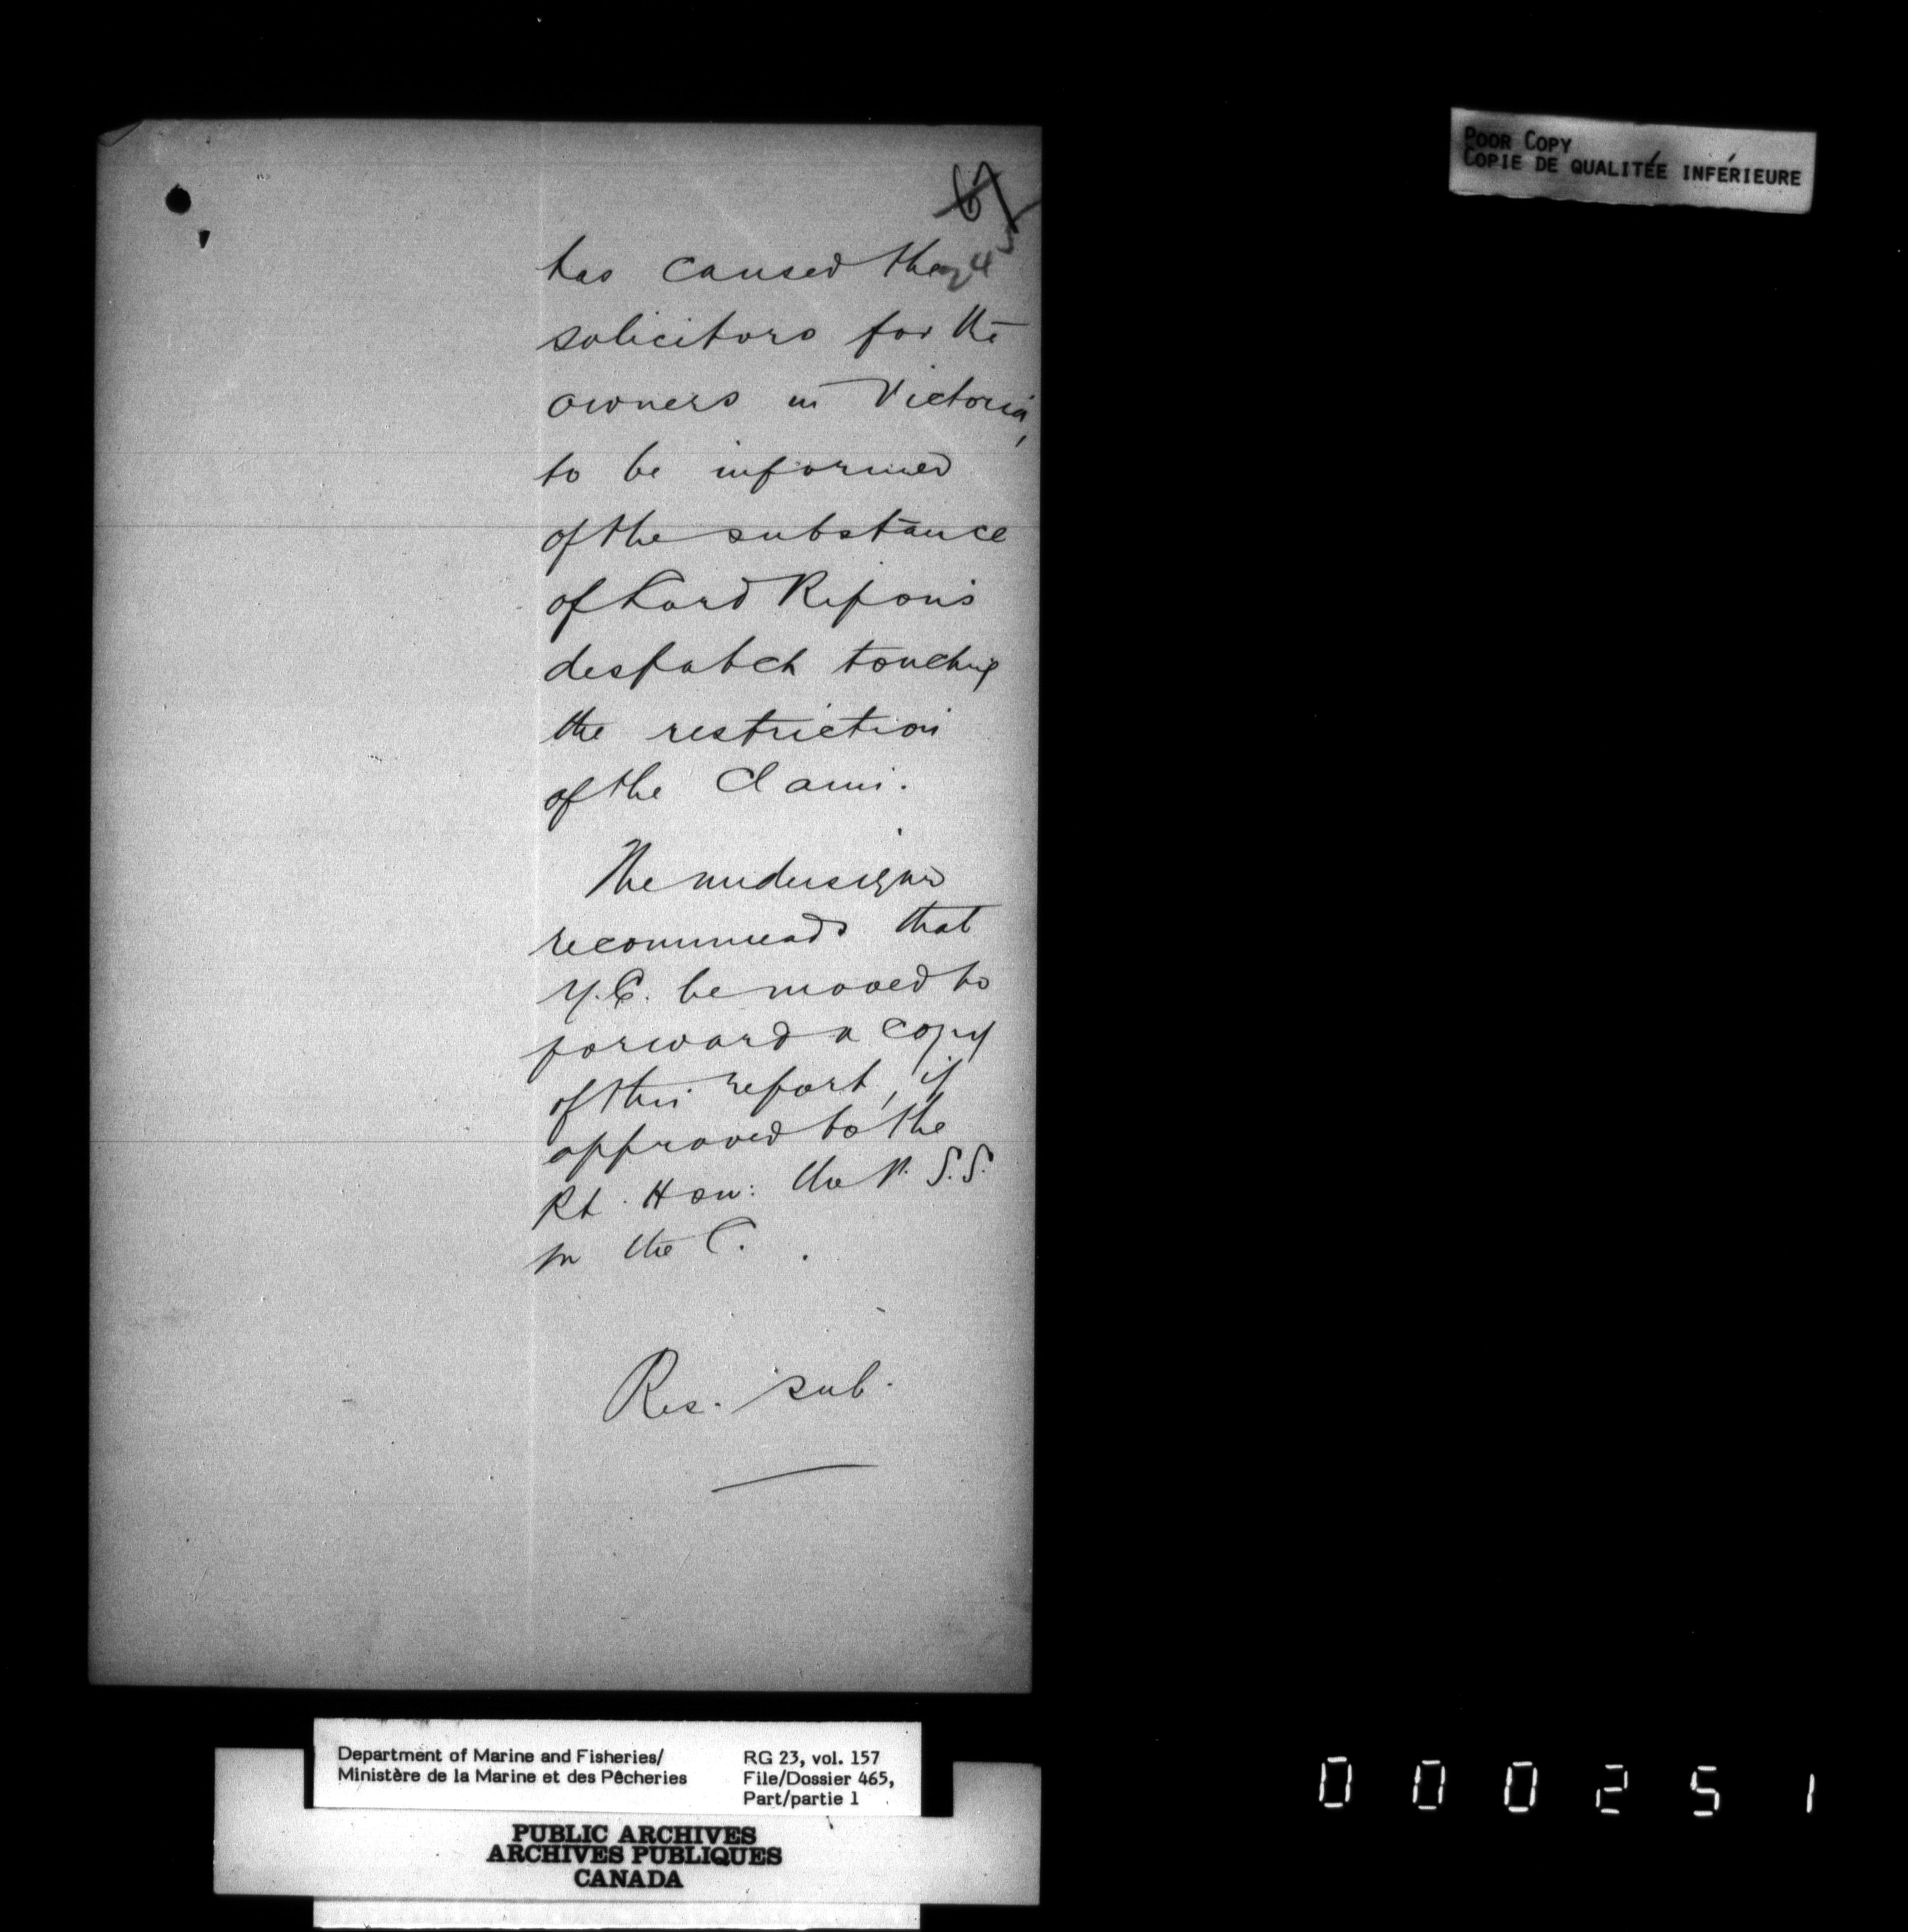 POOR COPY
COPIE DE QUALITÉE INFÉRIEURE
67
has caused the
solicitors for the
owners in Victoria,
to be informed
of the substance
of Lord Ripon's
despatch touching
the restriction
of the Claim.
The undersigned
recommends that
Y.E. be moved to
forward a copy
of this report, if
approved to the
Rt. Hon: the P. S.S.
for the C.
Res. sub.
Department of Marine and Fisheries/
Ministère de la Marine et des Pêcheries
RG 23, vol. 157
File/Dossier 465,
Part/partie 1
PUBLIC ARCHIVES
ARCHIVES PUBLIQUES
CANADA
000251